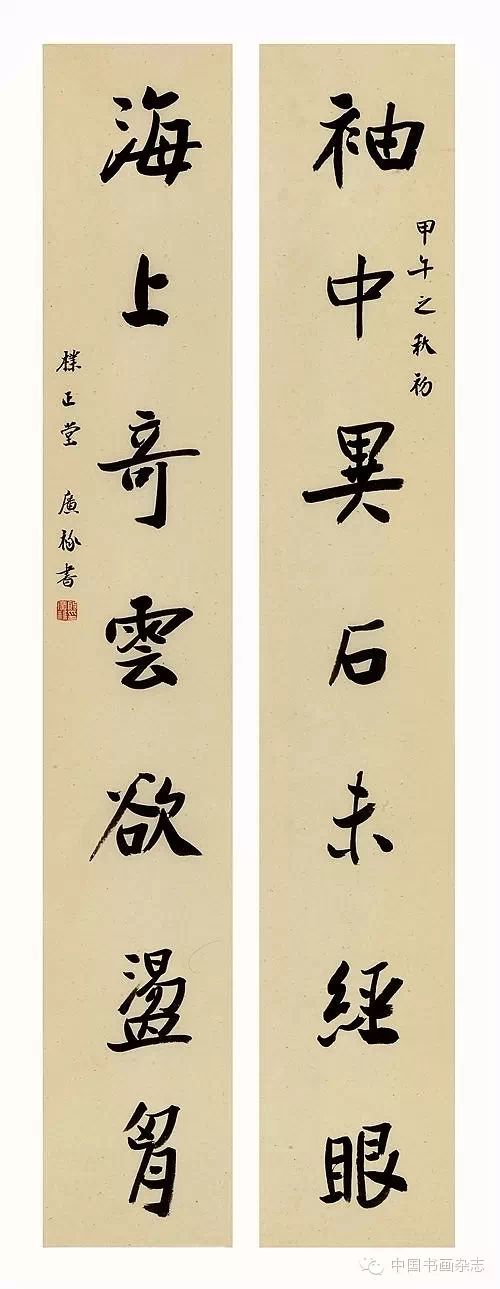 袖中異石未經眼
甲午之秋初
海上竒雲欲盪胷
正堂 廣 書
中国书画杂志